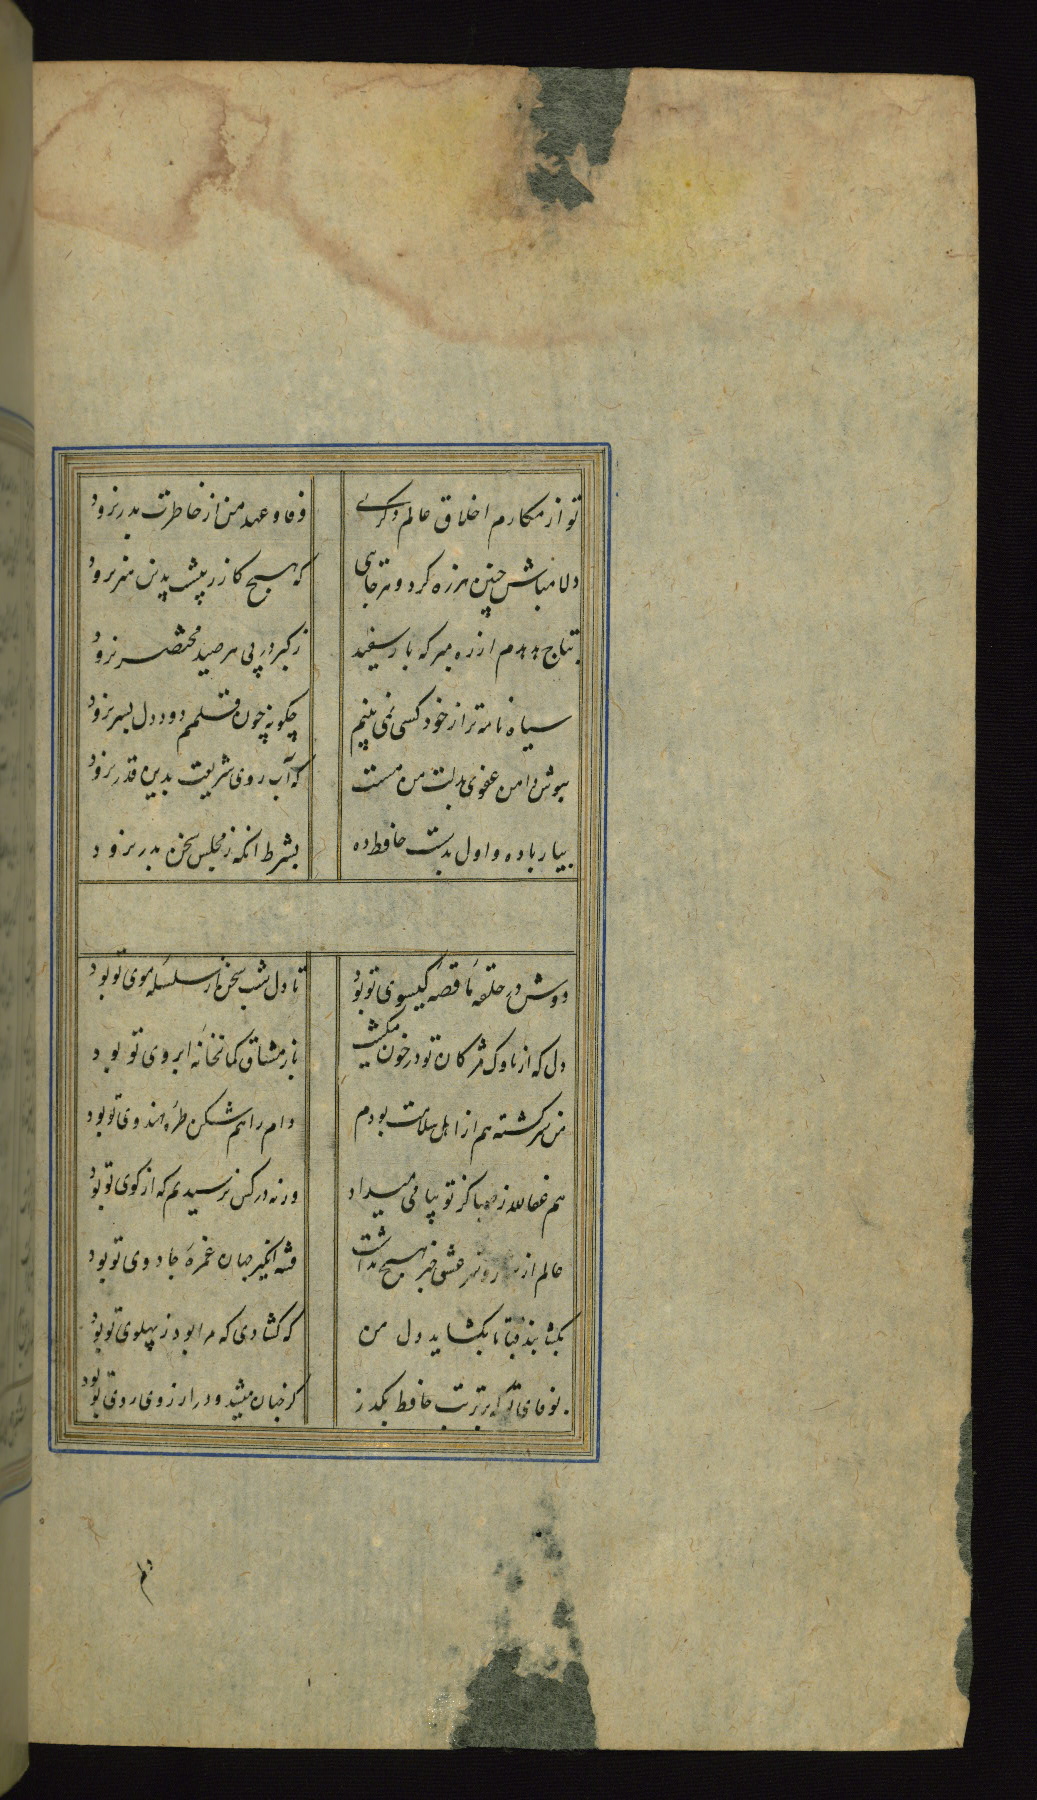 تو از مکارم اخلاق عالم دگری وفا و عهد من از خاطرت بدر نرود
دلا مباش چنین هرزه کرد و هر جایی که هیچ کار ز پیشت بدین هنر نرود
بتاج هدهدم از ره مبر که باز سفید ز کبر در پی هر صید مختصر نرود
سیاه نامه تر از خود کسی نمی بینم چگونه چون قلمم دود دل بسر نرود
بپوش دامن عفوی بذلت من مست که آب روی شریعت بدین قدر نرود
بیار باده و اول بدست حافظ ده بشرط آنکه ز مجلس سخن بدر نرود
دوش در حلقه ما قصه کیسوی تو بود تا دل شب سخن از سلسله موی تو بود
دل که از ناوک مژکان تو در خون میکشت باز مشتاق کمانخانه ابروی تو بود
من سرکشته هم از اهل سلامت بودم دام راهم شکن طره هندوی تو بود
هم عفا الله ز صبا کز تو پیامی میداد ورنه در کس نرسیدیم که از کوی تو بود
عالم از شور و شر عشق خبر هیچ نداشت فتنه انکیز جهان غمزه جادوی تو بود
بکشا بند قبا تا بکشاید دل من که کشادی که مرا بود ز پهلوی تو بود
بوفای تو که بر تربت حافظ بکذر کز جهان میشد و در ارزوی روی تو بود